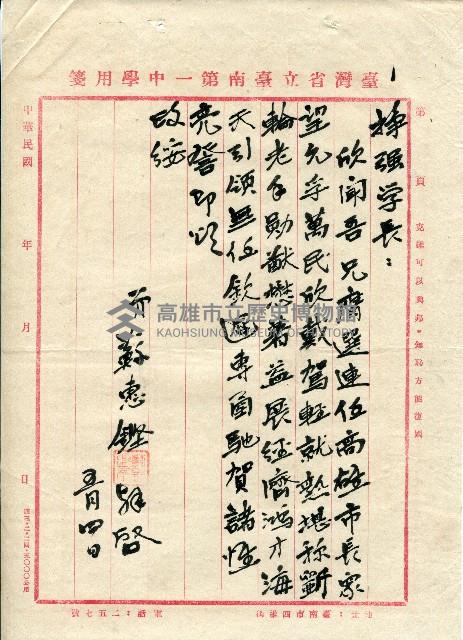 臺灣省立臺南第一中學用箋
第 頁 克難可以興邦・知恥方能復國
掙強学長：
欣聞吾兄膺選連任高雄市長眾
望允孚萬民欣戴駕輕就熟堪称斵
輪老手勛猷懋著益展經濟鴻才海
天引領無任欽遲專函馳賀諸惟
亮詧即頌
政綏
弟蘇惠鏗拜啓
五月四日
中華民國 年 月 日
地址：臺南市四維街
電話：二五七號
高雄市立歷史博物館
KAOHSIUNG MUSEUM OF HISTORY